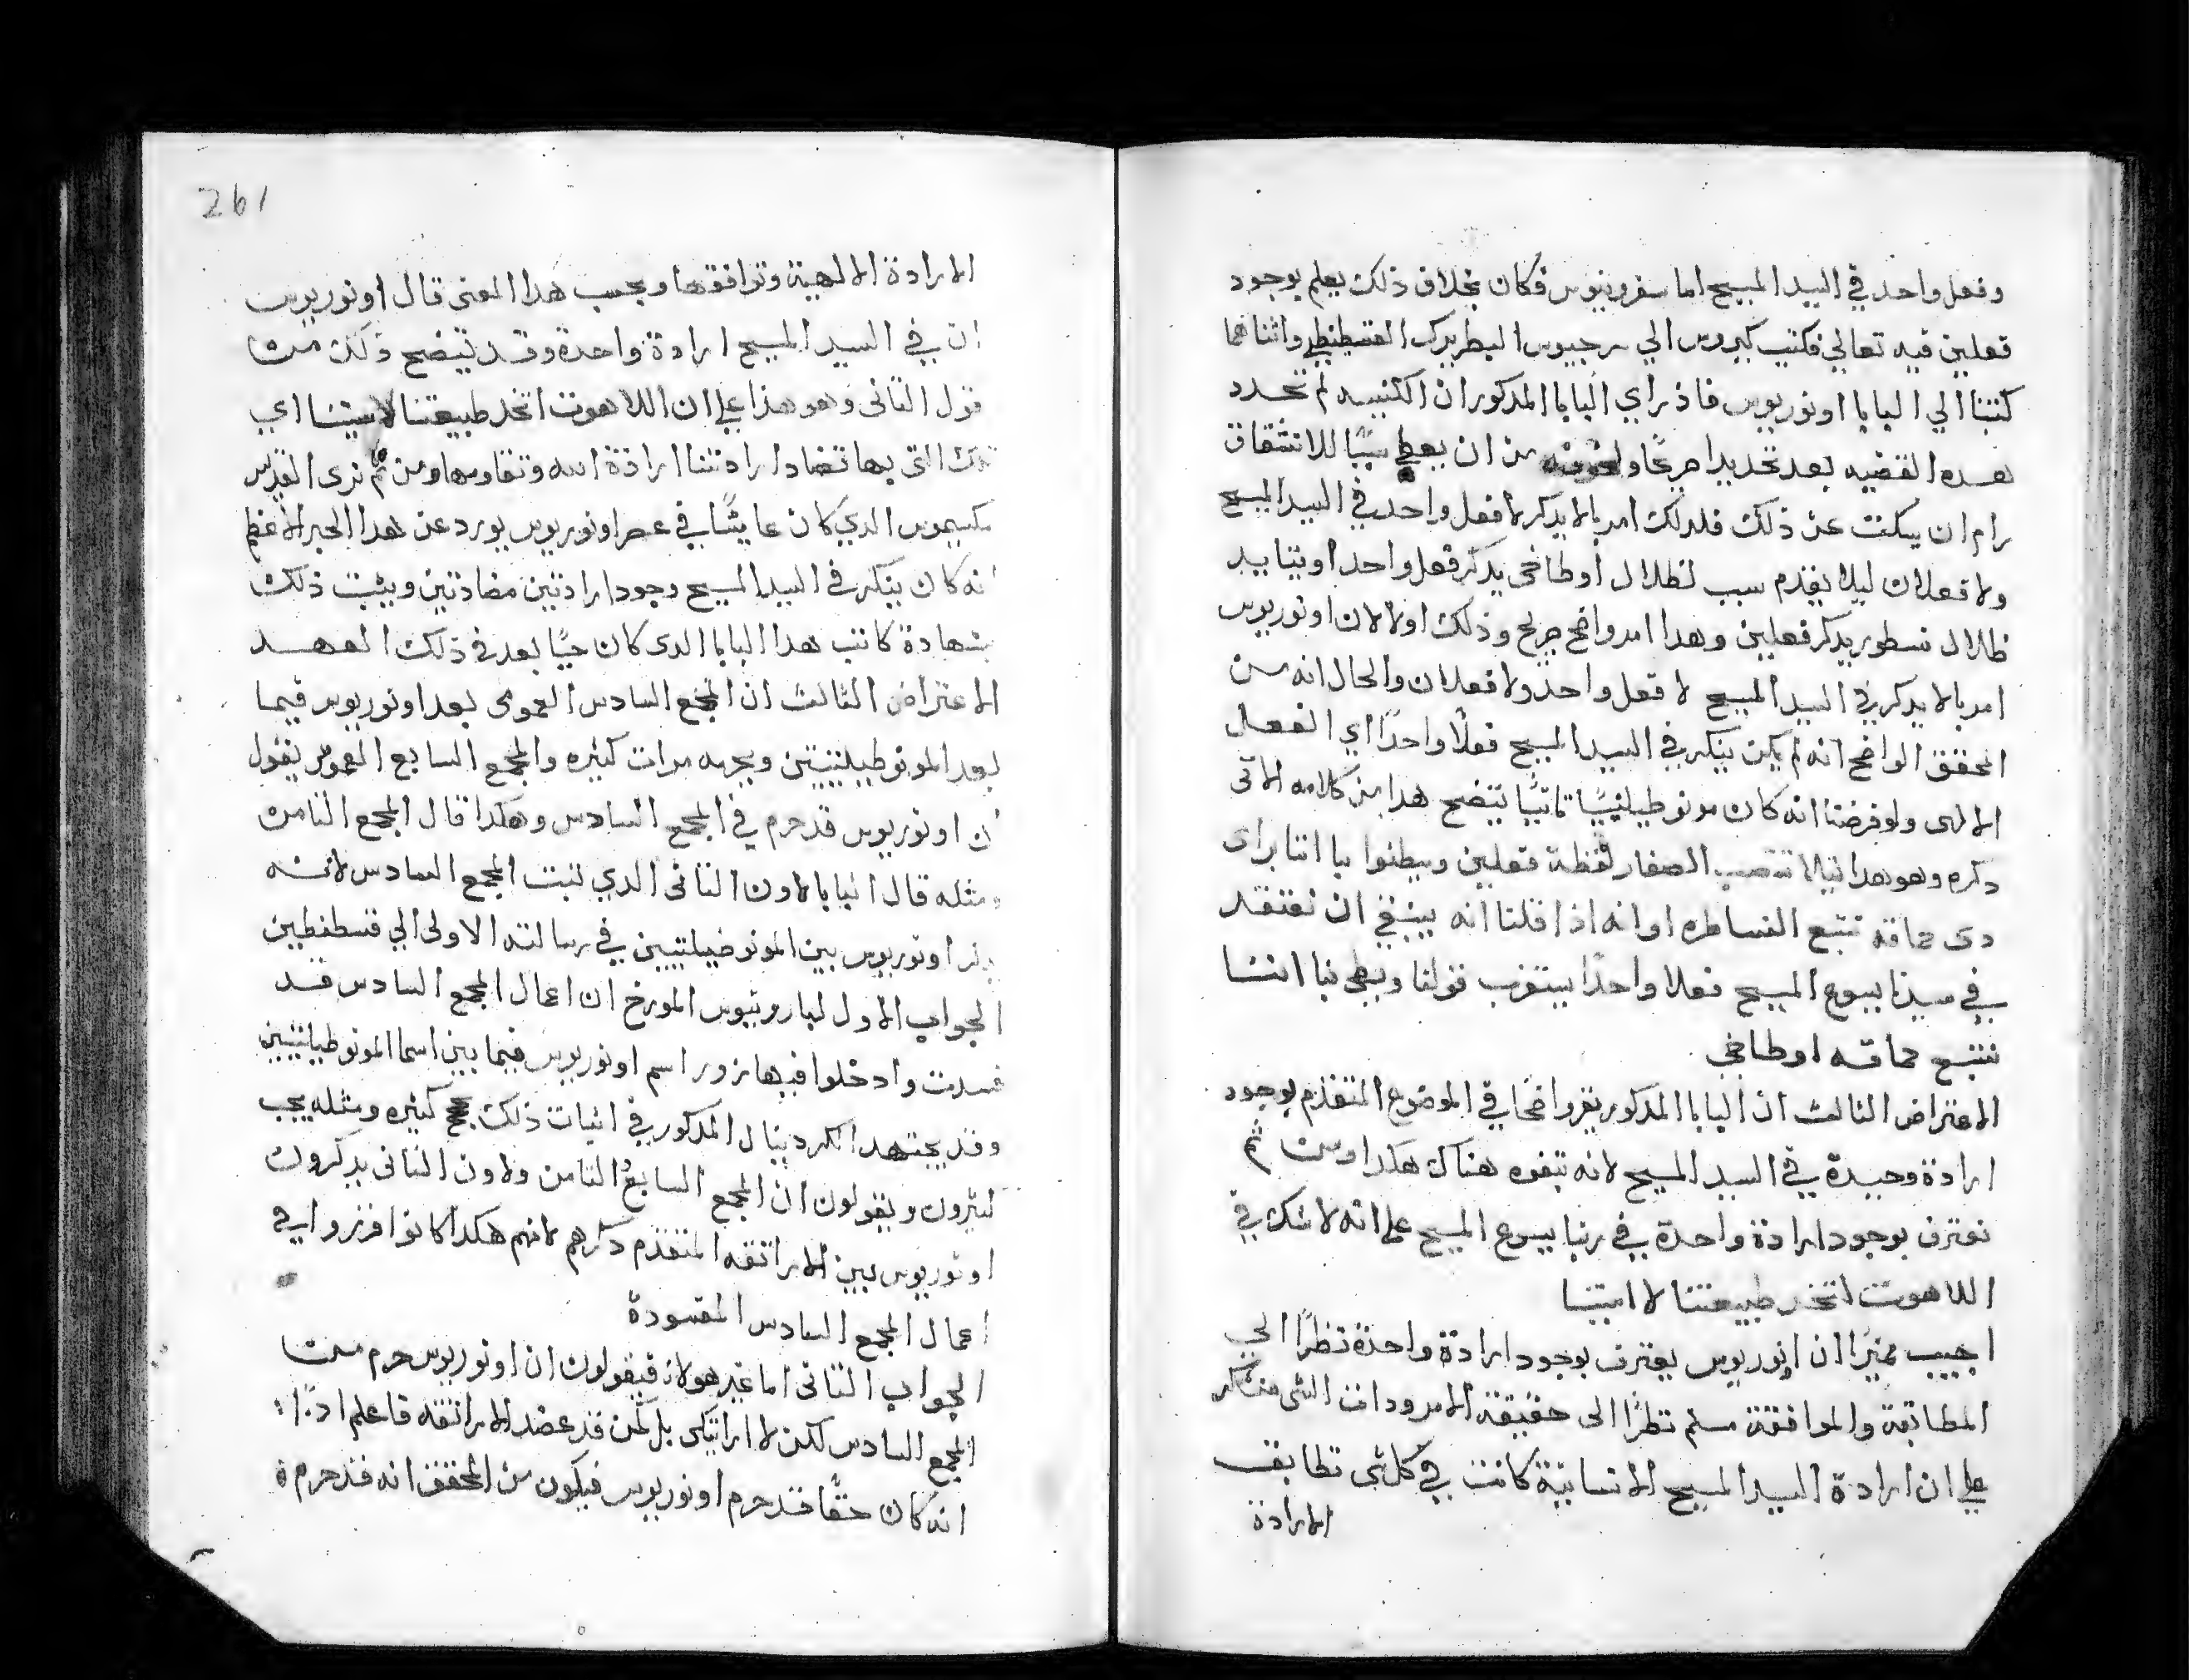 وفعل واحد في السيد المسيح اما سفرونيوس فكان بخلاف ذلك يعلم بوجود
فعلين فيه تعالي فكتب كيروس الي سرجيوس البطريرك القسطنطي واثناهما
كتبا الي البابا اونوريوس فاذ راي البابا المدكور ان الكنيسه لم تحدد
هده القضيه بعد تحديدا صريحًا ولخوفه من ان يعطي سببًا للانشقاق
رام ان يسكت عن ذلك فلدلك امر بالا يدكر لا فعل واحد في السيد المسيح
ولا فعلان ليلا يقدم سبب لظلال أوطاخي يدكر فعل واحد او يتايد
ظلال نسطور يدكر فعلين وهدا امر واضح صريح وذلك اولا لان اونوريوس
امر بالا يدكر في السيد المسيح لا فعل واحد ولا فعلان والحال انه من
المحقق الواضح انه لم يكن ينكر في السيد المسيح فعلًا واحدًا اي الفعل
الالهى ولو فرضنا انه كان مونوطيليتيًا ثانيًا يتضح هدا من كلامه الاتى
دكره وهو هدا ليلا تتعب الصغار لفظة فعلين ويظنوا بنا اننا براى
دى حماقة نتبع النساطره او انه اذا قلنا انه ينبغي ان نعتقد
في سيدنا يسوع المسيح فعلا واحدًا يستغرب قولنا ويظن بنا اننا
نتبع حماقه اوطاخي
الاعتراض الثالث ان البابا المدكور يقر واضحًا في الموضوع المتقدم بوجود
ارادة وحيدة في السيد المسيح لانه يتفوه هناك هكدا ومن ثم
نعترف بوجود ارادة واحدة في ربنا يسوع المسيح علي انه لا شك في
اللاهوت اتخد طبيعتنا لا اثمنا
اجيب مميزًا ان انوريوس يعترف بوجود ارادة واحدة نظرًا الي
المطابقة والموافقة مسلم نظرًا الى حقيقة المرودات الشى منكر
علي ان ارادة السيد المسيح الانسانية كانت في كل شى تطابق
الارادة
261
الارادة الالهية وتوافقها وبحسب هدا المعنى قال اونوريوس
ان في السيد المسيح ارادة واحدة وقد يتضح ذلك من
قول التانى وهو هذا علي ان اللاهوت اتخد طبيعتنا لا اثمنا اي
تلك التى بها تضاد ارادتنا ارادة الله وتقاومها ومن ثم نرى القديس
مكسيموس الدي كان عايشًا في عصر اونوريوس يورد عن هدا الحبر الاعظم
انه كان ينكر في السيد المسيح وجود ارادتين مضادتين ويثبت ذلك
بشهادة كاتب هدا البابا الدى كان حيًا بعد في ذلك العهد
الاعتراض الثالث ان المجمع السادس العمومى يعد اونوريوس فيما
يعد المونوطيليتيين ويحرمه مرات كثيره والمجمع السابع العمومى يقول
ان اونوريوس قد حرم في المجمع السادس وهكدا قال المجمع الثامن
ومثله قال البابا لاون الثانى الدي ثبت المجمع السادس لانه
يعد اونوريوس بين المونوطيليتيين في رسالته الاولى الي قسطنطين
الجواب الاول لبارونيوس المورخ ان اعمال المجمع السادس قد
فسدت وادخلوا فيها بزور اسم اونوريوس فيما بين اسما المونوطيليتيين
وقد يجتهد الكردينال المدكور في اثبات ذلك بحجج كثيره ومثله يجيب
كثيرون ويقولون ان المجمع السابع والثامن ولاون الثانى يدكرون
اونوريوس بين الاراتقه المتقدم دكرهم لانهم هكدا كانوا افرزوا في
اعمال المجمع السادس المفسودة
الجواب الثانى اما غير هولاء فيقولون ان اونوريوس حرم من
المجمع السادس لكن لا اراتيكى بل كمن قد عضد الاراتقه فاعلم ادًا
انه كان حقًا قد حرم اونوريوس فيكون من المحقق انه قد حرم ة